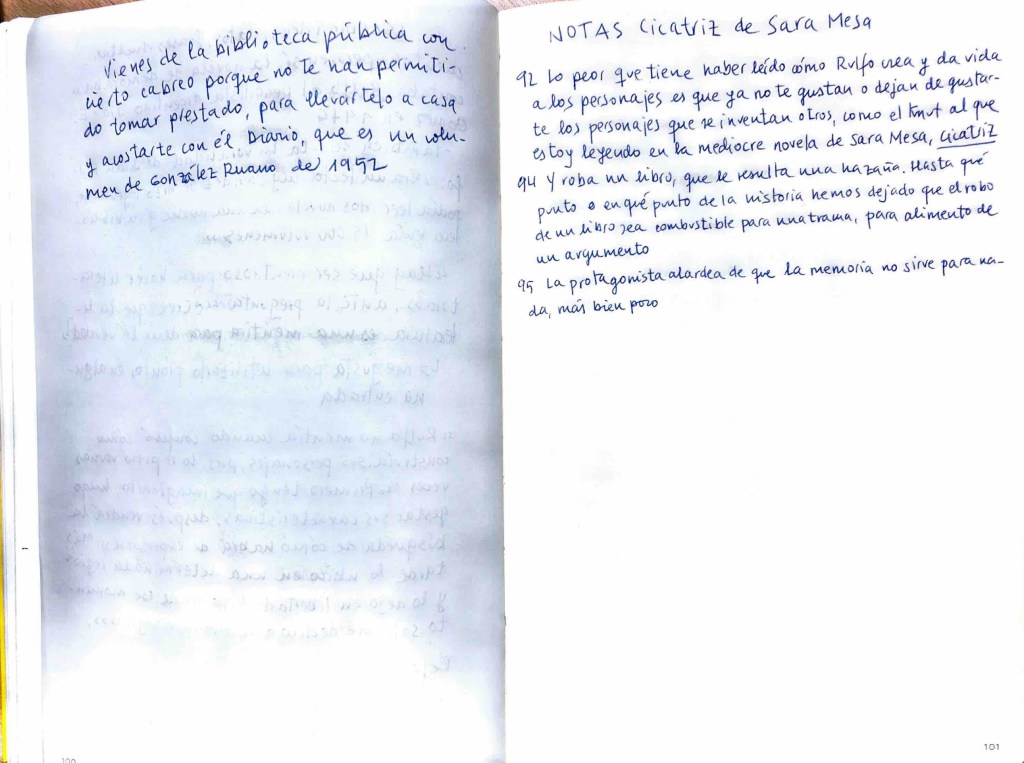 Vienes de la biblioteca pública con
cierto cabreo porque no te han permiti-
do tomar prestado, para llevártelo a casa
y acostarte con él Diario, que es un volu-
men de González Ruano de 1952
100
NOTAS Cicatriz de Sara Mesa
92 Lo peor que tiene haber leído cómo Rulfo crea y da vida
a los personajes es que ya no te gustan o dejan de gustar-
te los personajes que se inventan otros, como el Knut al que
estoy leyendo en la mediocre novela de Sara Mesa, Cicatriz
94 Y roba un libro, que le resulta una hazaña. Hasta qué
punto o en qué punto de la historia hemos dejado que el robo
de un libro sea combustible para una trama, para alimento de
un argumento
95 La protagonista alardea de que la memoria no sirve para na-
da, más bien pozo
101